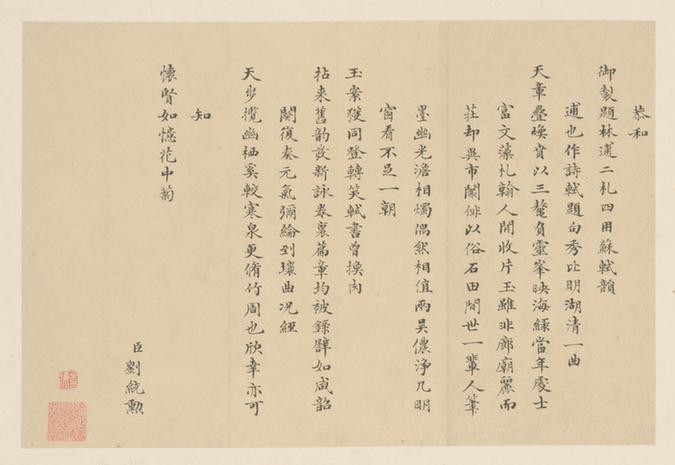 恭和
御製題林逋二札四用蘇軾韻
逋也作詩軾題句秀比明湖清一曲
天章疊喚賁以三鼇負靈峯映海綠當年處士
富文藻札翰人間收片玉雖非廊廟麗而
莊却異市闤俳以俗石田間世一輩人筆
墨幽光澹相燭偶然相值兩吳儂淨几明
窗看不足一朝
玉案獲同登轉笑軾書曾換肉
拈來舊韵發新詠卷裏篇章均被錄譬如咸韶
闋復奏元氣彌綸到壤曲况經
天步攬幽栖奚較寒泉更脩竹周也欣幸亦可
知
懷賢如憶花中菊
臣
劉統勲